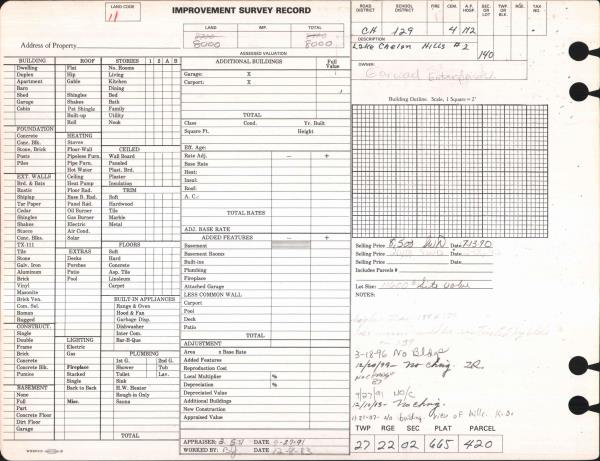 LAND CODE
11
IMPROVEMENT SURVEY RECORD
LAND IMP. TOTAL
8000 8000
Address of Property
ASSESSED VALUATION
ROAD DISTRICT SCHOOL DISTRICT FIRE CEM. A.P. HOSP SEC. OR LOT TWP. OR BLK. TAX NO.
CH 129 4 H2
DESCRIPTION
Lake Chelan Hills #2 140
OWNER
BUILDING ROOF STORIES 1 2 A B
Dwelling Flat No. Rooms
Duplex Hip Living
Apartment Gable Kitchen
Barn Dining
Shed Shingles Bed
Garage Shakes Bath
Cabin Pat Shingle Family
Built-up Utility
Roll Nook
FOUNDATION
Concrete HEATING
Conc. Blk. Stoves
Stone, Brick Floor-Wall CEILED
Posts Pipeless Furn. Wall Board
Piles Pipe Furn. Paneled
Hot Water Plast. Brd.
EXT. WALLS Ceiling Plaster
Brd. & Bats Heat Pump Insulation
Rustic Floor Rad. TRIM
Shiplap Base B. Rad. Soft
Tar Paper Panel Rad. Hardwood
Cedar Oil Burner Tile
Shingles Gas Burner Marble
Shakes Electric Metal
Stucco Air Cond.
Conc. Blks. Solar FLOORS
TX-111 EXTRAS Soft
Tile Decks Hard
Stone Porches Concrete
Galv. Iron Patio Asp. Tile
Aluminum Pool Linoleum
Brick Carpet
Vinyl
Masonite
Brick Ven. BUILT-IN APPLIANCES
Com. Sel. Range & Oven
Roman Hood & Fan
Rugged Garbage Disp.
CONSTRUCT. Dishwasher
Single LIGHTING Inter Com.
Double Electric Bar-B-Que
Frame Gas PLUMBING
Brick 1st G. 2nd G.
Concrete Fireplace Shower Tub
Concrete Blk. Stacked Toilet Lav.
Pumice Single Sink
BASEMENT Back to Back H.W. Heater
None Rough-in Only
Full Misc. Sauna
Part
Concrete Floor
Dirt Floor
Garage TOTAL
ADDITIONAL BUILDINGS Full Value
Garage: X
Carport: X
TOTAL
Class Cond. Yr. Built
Square Ft. Height
Eff. Age:
Rate Adj. — +
Base Rate
Heat:
Insul:
Roof:
A. C.:
TOTAL RATES
ADJ. BASE RATE
ADDED FEATURES — +
Basement
Basement Rooms
Built-ins
Plumbing
Fireplace
Attached Garage
LESS COMMON WALL
Carport
Pool
Deck
Patio
TOTAL
ADJUSTMENT
Area x Base Rate
Added Features
Reproduction Cost
Local Multiplier %
Depreciation %
Depreciated Value
Additional Buildings
New Construction
Appraised Value
APPRAISER: DATE 9-27-91
WORKED BY: DATE
Building Outline: Scale, 1 Square = 2'
Selling Price 8,500 Date 7-13-90
Selling Price Date
Selling Price Date
Includes Parcels #
Lot Size: site value
NOTES:
3-18-96 No Bldgs
No Chng.
9/27/91 N/C
12/10/83 No Chng.
No building View of hills
TWP RGE SEC PLAT PARCEL
27 22 02 665 420